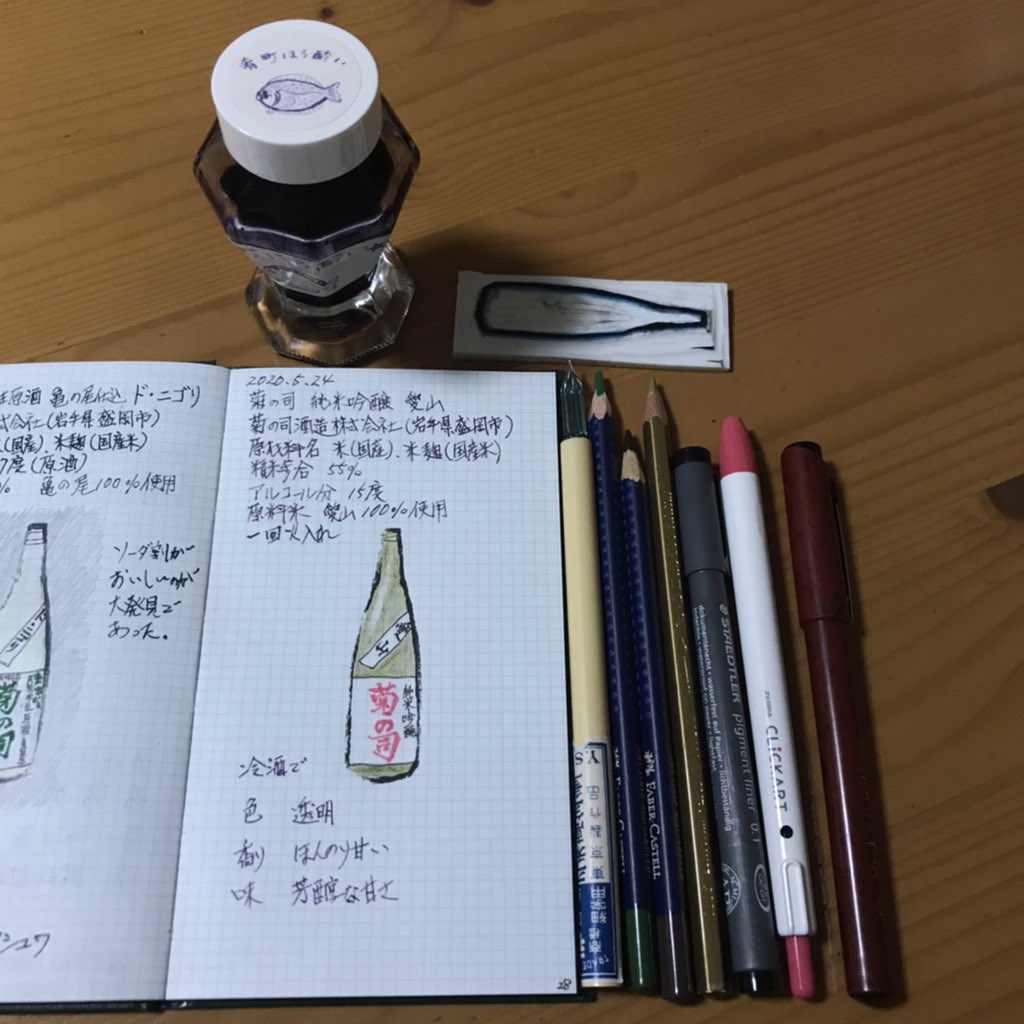 青町ほろ酔い
原酒 亀の尾仕込 ド・ニゴリ
株式会社(岩手県盛岡市)
(国産)、米麹(国産米)
7度(原酒)
% 亀の尾100%使用
ソーダ割が
おいしいのが
大発見で
あった。
菊の司
2020.5.24
菊の司 純米吟醸 愛山
菊の司酒造株式会社(岩手県盛岡市)
原材料名 米(国産)、米麹(国産米)
精米歩合 55%
アルコール分 15度
原料米 愛山100%使用
一回火入れ
愛山
純米吟醸
菊の司
冷酒で
色 透明
香り ほんのり甘い
味 芳醇な甘さ
28
FABER CASTELL
FABER-CASTELL
STAEDTLER pigment liner 0.1
dokumentenecht • wasserfest auf Papier • lichtbeständig
ZEBRA CLiCKART